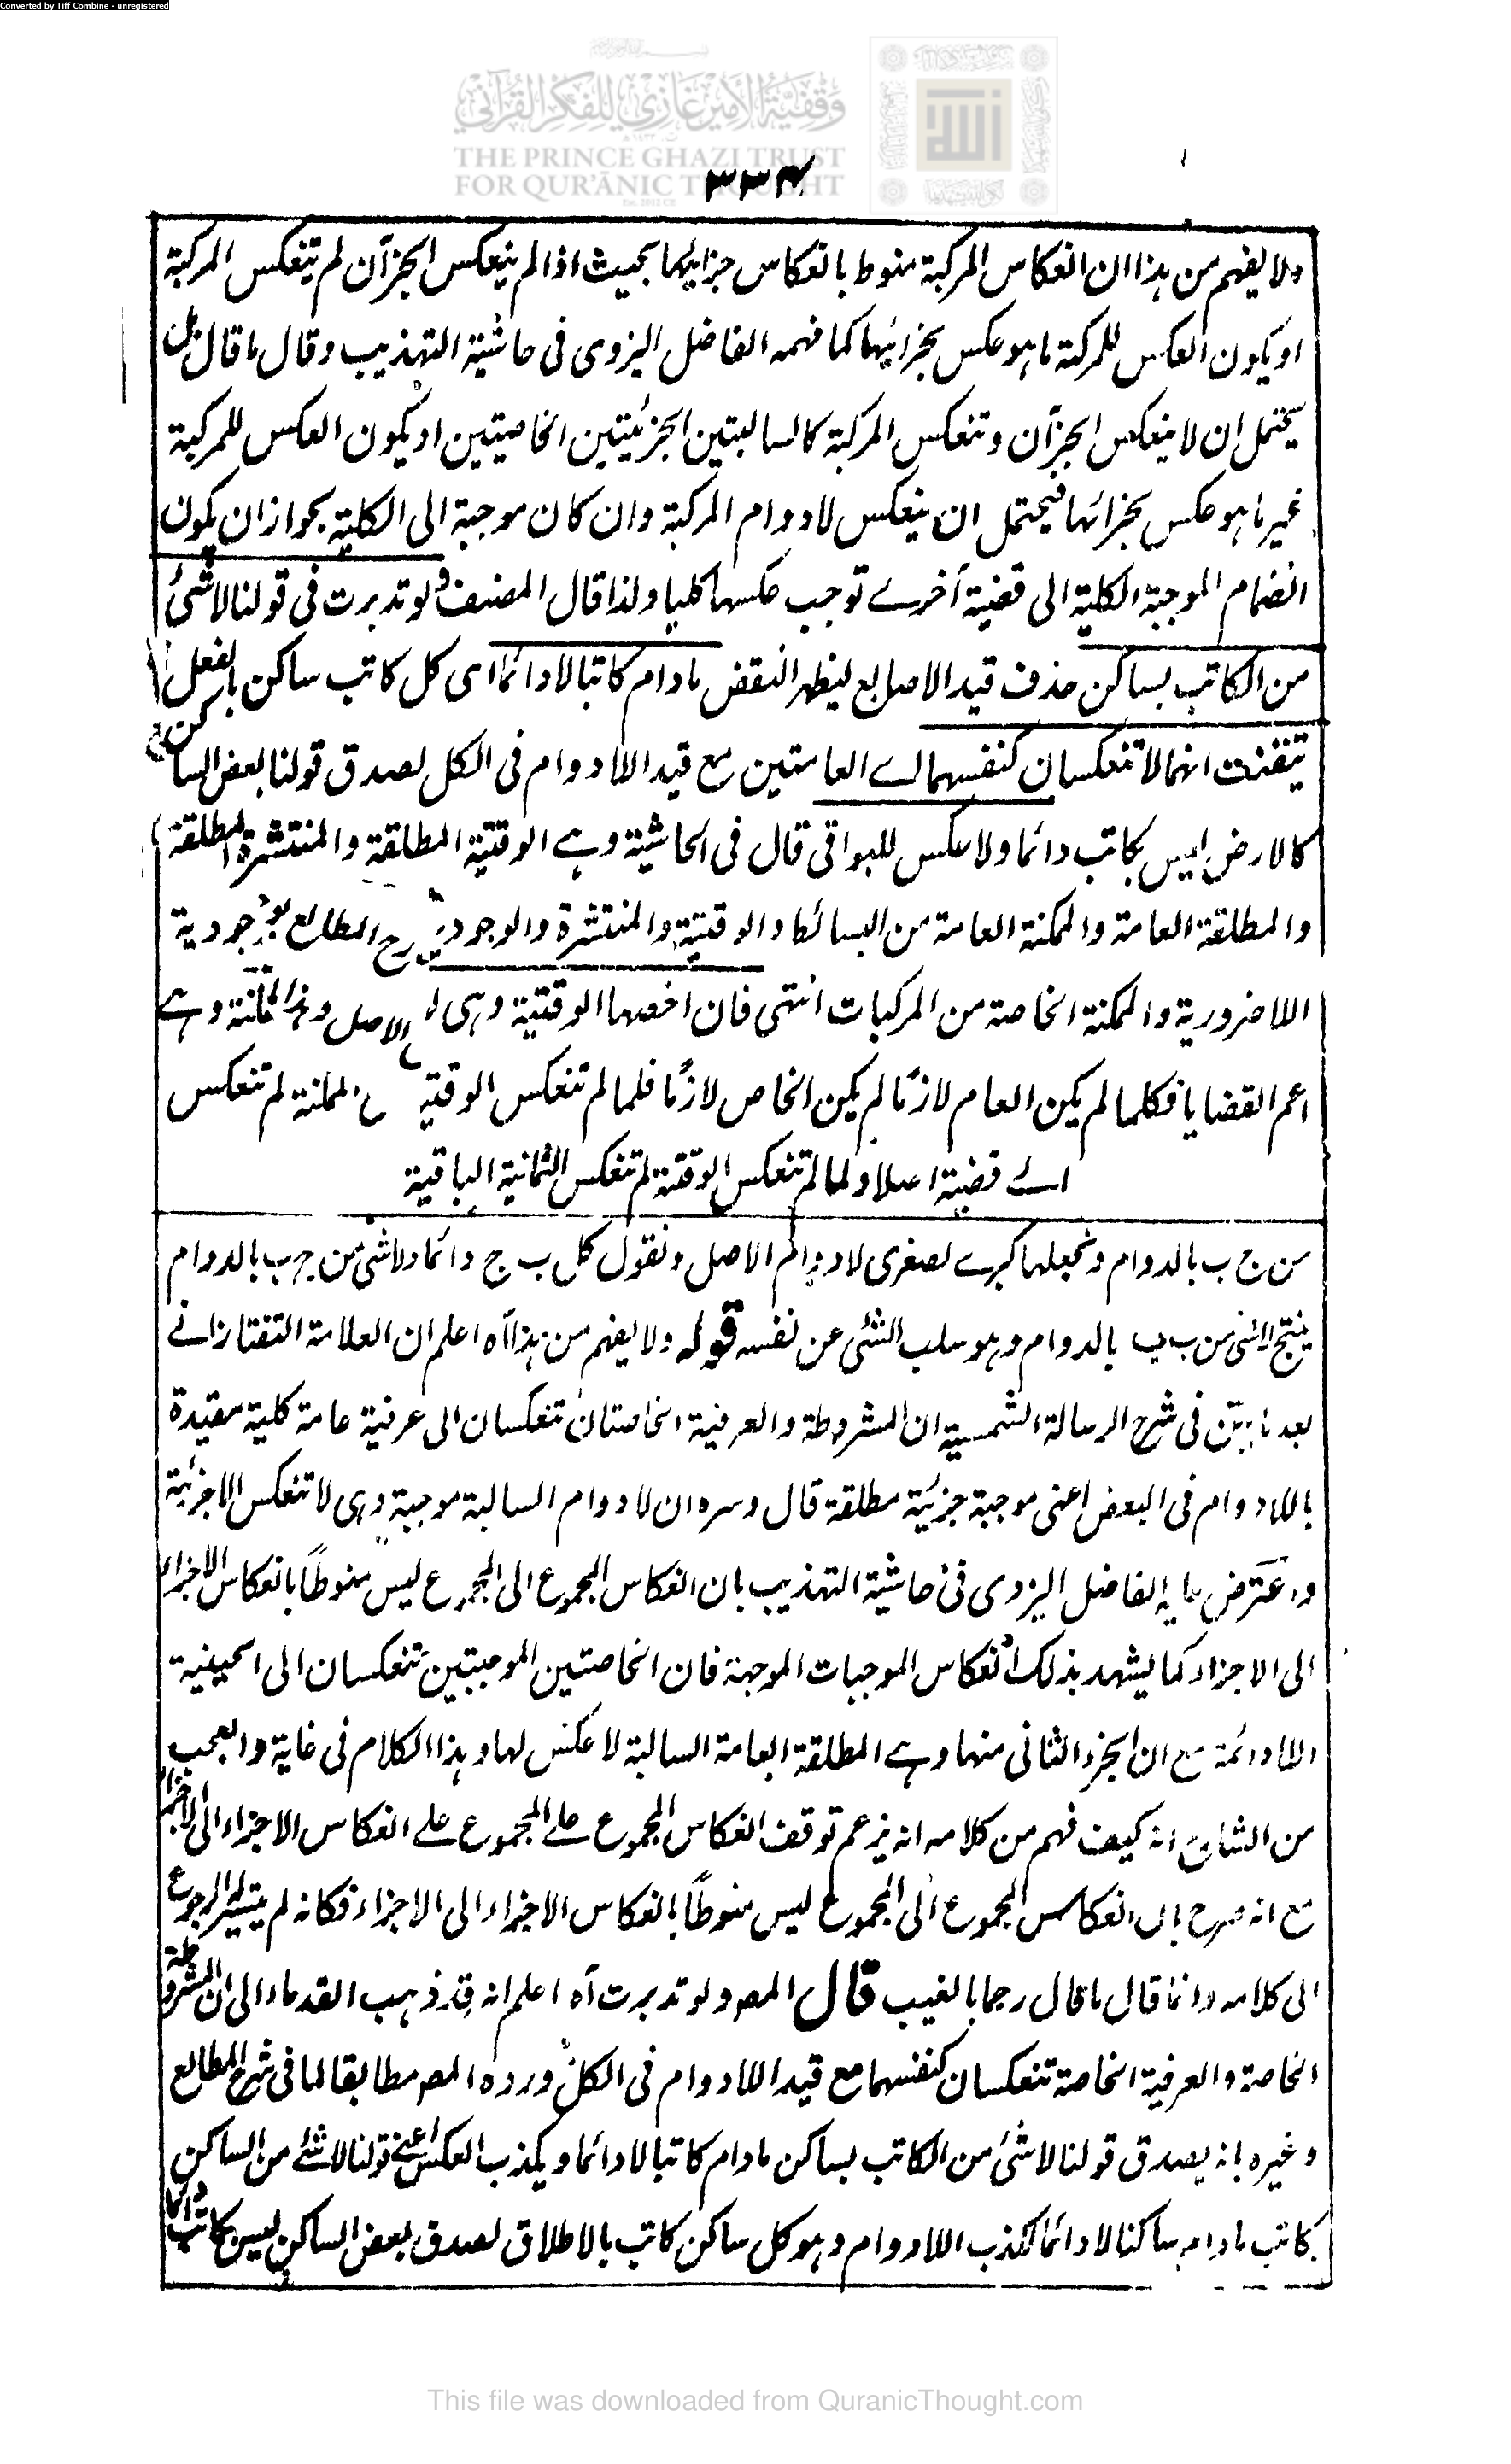 Converted by Tiff Combine - unregistered
وقفية الأمير غازي للفكر القرآني
THE PRINCE GHAZI TRUST
FOR QUR'ĀNIC THOUGHT
٣٣٤
ولا يفهم من هذا ان انعكاس المركبة منوط بانعكاس جزائيهما بحيث اذا لم ينعكس الجزآن لم تنعكس المركبة
او يكون العكس للمركبة ما هو عكس بجزائيها كما فهمه الفاضل اليزدى فى حاشية التهذيب وقال ما قال بل
يحتمل ان لا ينعكس الجزآن وتنعكس المركبة كالسالبتين الجزئيتين الخاصيتين او يكون العكس للمركبة
غير ما هو عكس بجزائها فيحتمل ان ينعكس لادوام المركبة وان كان موجبة الى الكلية بجواز ان يكون
انضمام الموجبة الكلية الى قضية أخرے توجب عكسها كليا ولذا قال المصنف ولو تدبرت فى قولنا لا شئ
من الكاتب بساكن حذف قيد الاصابع ليظهر النقض مادام كاتبا لا دائما اى كل كاتب ساكن بالفعل
تيقنت انهما لا تنعكسان كنفسهما الے العامتين مع قيد اللادوام فى الكل لصدق قولنا بعض الساكن
كالارض ليس بكاتب دائما ولا عكس للبواقى قال فى الحاشية وهے الوقتية المطلقة والمنتشرة المطلقة
والمطلقة العامة والممكنة العامة من البسائط والوقتية والمنتشرة والوجودية
اللاضرورية والممكنة الخاصة من المركبات انتهى فان اخصها الوقتية وهى
اعم القضايا فكلما لم يكن العام لازمًا لم يكن الخاص لازمًا فلما لم تنعكس الوقتية الممكنة لم تنعكس
الے قضية اصلا ولما لم تنعكس الوقتية لم تنعكس الثمانية الباقية
من ج ب بالدوام ونجعلها كبرے لصغرى لادوام الاصل ونقول كل ب ج دائما ولا شئ من ج ب بالدوام
ينتج لا شئ من ب ب بالدوام وهو سلب الشئ عن نفسه قوله ولا يفهم من هذا آه اعلم ان العلامة التفتازانے
بعد ما بيّن فى شرح الرسالة الشمسية ان المشروطة والعرفية الخاصتان تنعكسان الى عرفية عامة كلية مقيدة
باللادوام فى البعض اعنى موجبة جزئية مطلقة قال وسره ان لادوام السالبة موجبة وهى لا تنعكس الا جزئية
واعترض عليه الفاضل اليزدى فى حاشية التهذيب بان انعكاس المجموع الى المجموع ليس منوطًا بانعكاس الاجزاء
الى الاجزاء كما يشهد بذلك انعكاس الموجبات الموجهة فان الخاصتين الموجبتين تنعكسان الى الحينية
اللادائمة مع ان الجزء الثانى منهما وهے المطلقة العامة السالبة لا عكس لها وهذا الكلام فى غاية والعجب
من الشارح انه كيف فهم من كلامه انه يزعم توقف انعكاس المجموع علے المجموع علے انعكاس الاجزاء الى الاجزاء
مع انه صرح بان انعكاس المجموع الى المجموع ليس منوطًا بانعكاس الاجزاء الى الاجزاء فكانه لم يتيسر له الرجوع
الى كلامه وانما قال ما قال رجما بالغيب قال المصو ولو تدبرت آه اعلم انه قد ذهب القدماء الى ان المشروطة
الخاصة والعرفية الخاصة تنعكسان كنفسهما مع قيد اللادوام فى الكل ورده المصو مطابقا لما فى شرح المطالع
وغيره بانه يصدق قولنا لا شئ من الكاتب بساكن مادام كاتبا لا دائما ويكذب العكس اعنے قولنا لا شئ من الساكن
بكاتب مادام ساكنا لا دائما لكذب اللادوام وهو كل ساكن كاتب بالاطلاق لصدق بعض الساكن ليس بكاتب دائما
This file was downloaded from QuranicThought.com